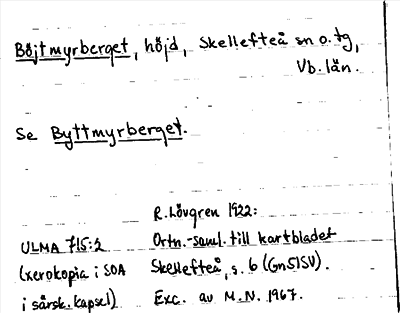 Böjtmyrberget, höjd, Skellefteå sn o. tg,
Vb. län.
Se Byttmyrberget.
R. Lövgren 1922:
ULMA 715:2 Ortn.-saml. till kartbladet
(xerokopia i SOA Skellefteå, s. 6 (Gn51SV).
i särsk. kapsel) Exc. av M.N. 1967.